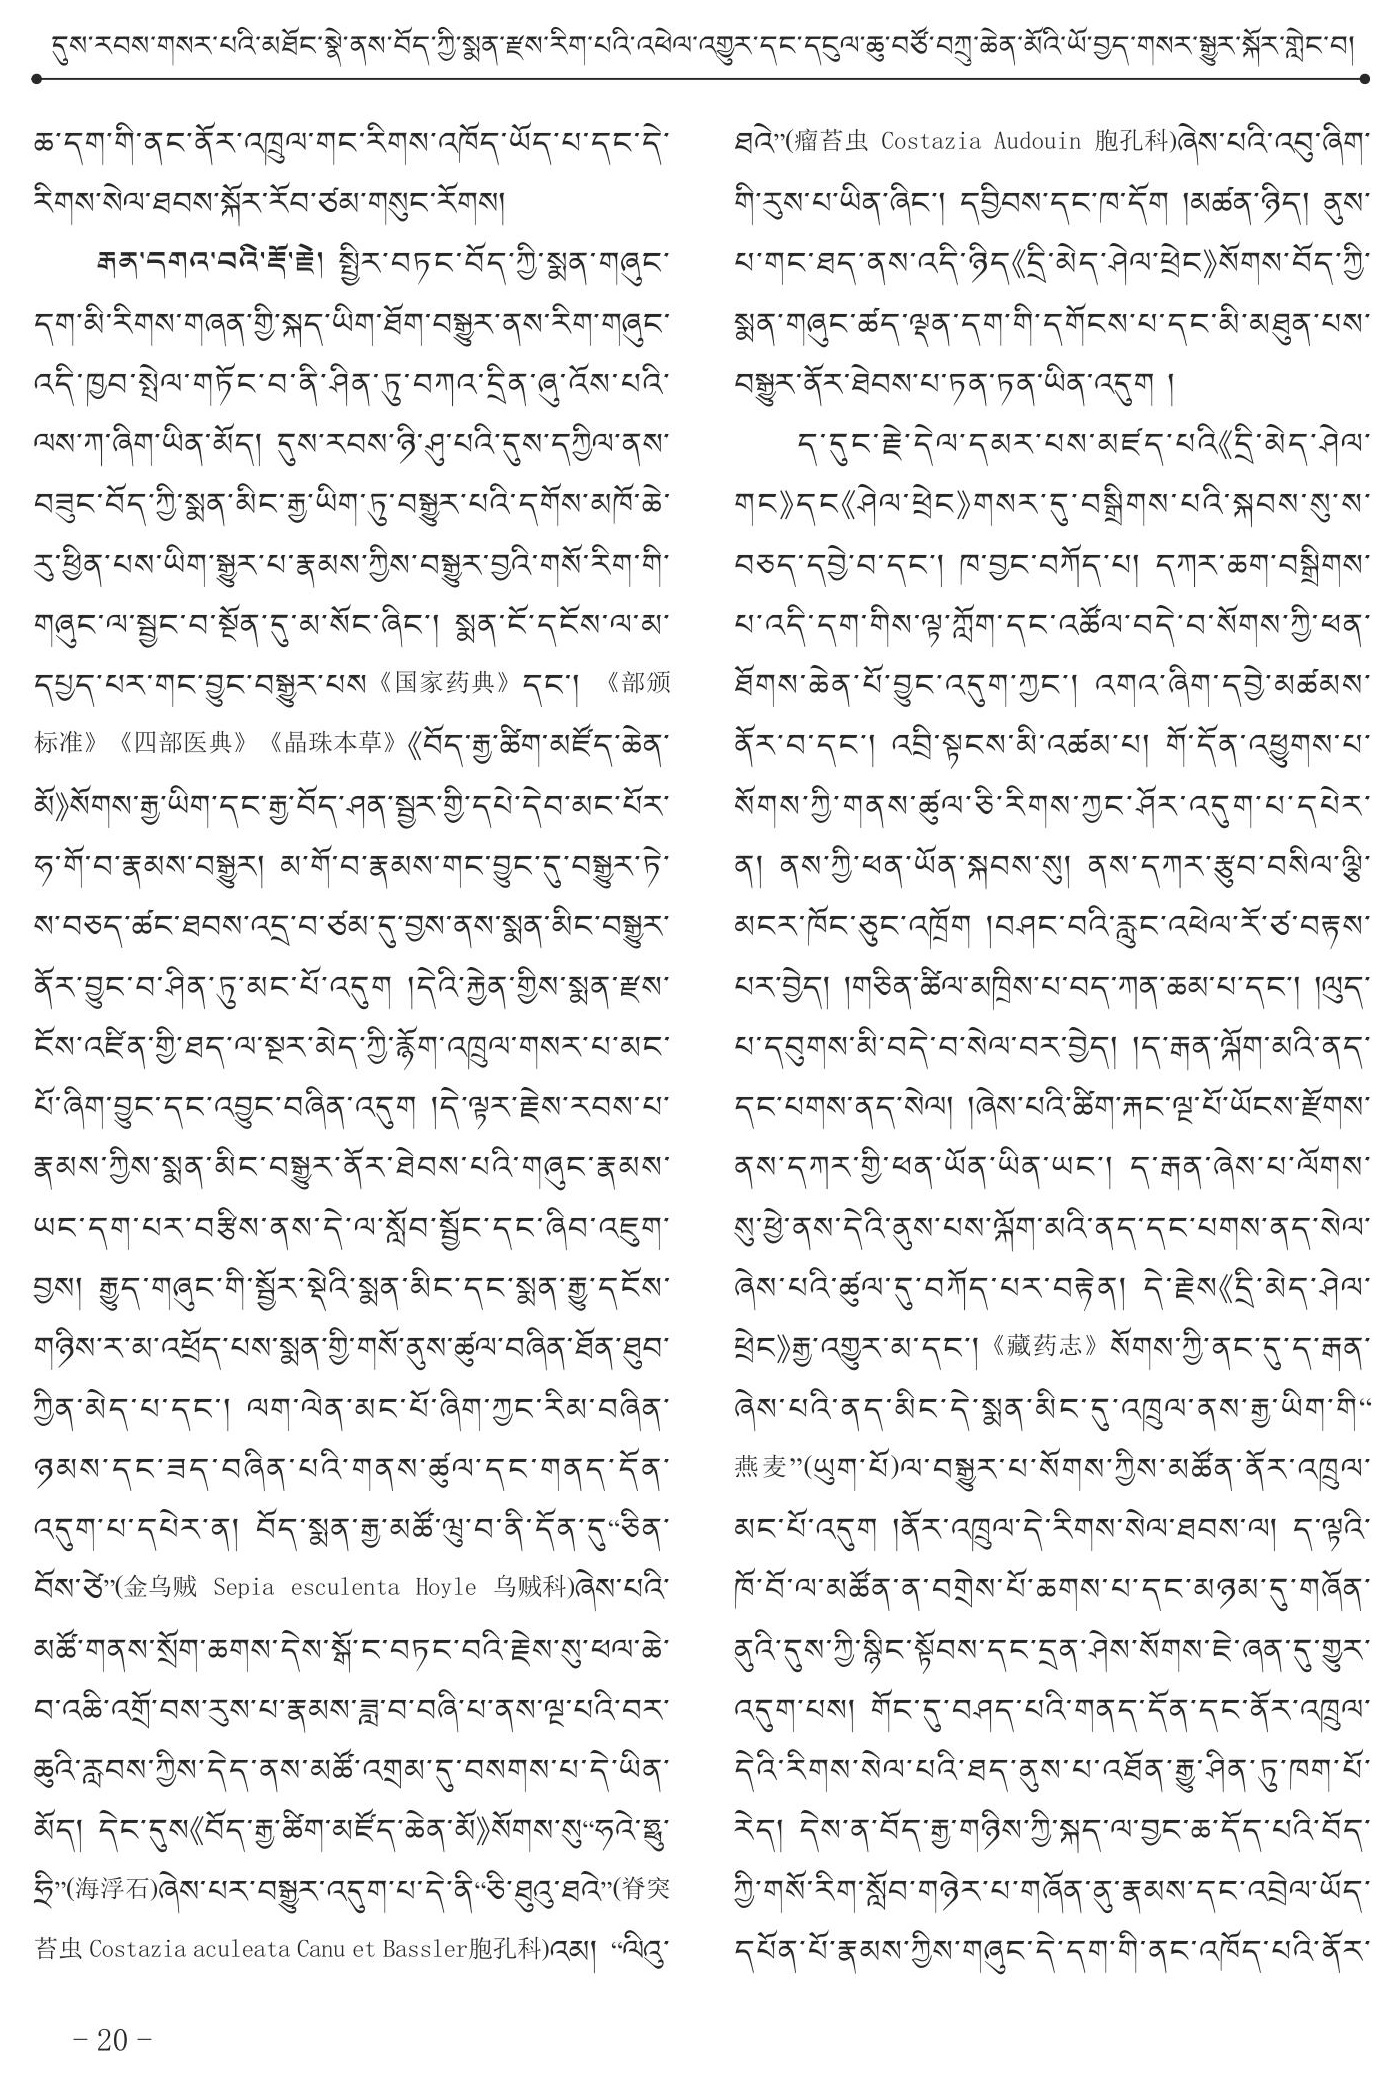 དུས་རབས་གསར་པའི་མཐོང་སྣེ་ནས་བོད་ཀྱི་སྨན་རྫས་རིག་པའི་འཕེལ་འགྱུར་དང་དངུལ་ཆུ་བཙོ་བཀྲུ་ཆེན་མོའི་ཡོ་བྱད་གསར་སྒྱུར་སྐོར་གླེང་བ།
ཆ་དག་གི་ནང་ནོར་འཁྲུལ་གང་རིགས་འཁོད་ཡོད་པ་དང་དེ་
རིགས་སེལ་ཐབས་སྐོར་རོབ་ཙམ་གསུང་རོགས།
རྒན་དགའ་བའི་རྡོ་རྗེ། སྤྱིར་བཏང་བོད་ཀྱི་སྨན་གཞུང་
དག་མི་རིགས་གཞན་གྱི་སྐད་ཡིག་ཐོག་བསྒྱུར་ནས་རིག་གཞུང་
འདི་ཁྱབ་སྤེལ་གཏོང་བ་ནི་ཤིན་ཏུ་བཀའ་དྲིན་ཞུ་འོས་པའི་
ལས་ཀ་ཞིག་ཡིན་མོད། དུས་རབས་ཉི་ཤུ་པའི་དུས་དཀྱིལ་ནས་
བཟུང་བོད་ཀྱི་སྨན་མིང་རྒྱ་ཡིག་ཏུ་བསྒྱུར་པའི་དགོས་མཁོ་ཆེ་
རུ་ཕྱིན་པས་ཡིག་སྒྱུར་པ་རྣམས་ཀྱིས་བསྒྱུར་བྱའི་གསོ་རིག་གི་
གཞུང་ལ་སྦྱང་བ་སྔོན་དུ་མ་སོང་ཞིང་། སྨན་ངོ་དངོས་ལ་མ་
དཔྱད་པར་གང་བྱུང་བསྒྱུར་པས《国家药典》དང་། 《部颁
标准》《四部医典》《晶珠本草》《བོད་རྒྱ་ཚིག་མཛོད་ཆེན་
མོ》སོགས་རྒྱ་ཡིག་དང་རྒྱ་བོད་ཤན་སྦྱར་གྱི་དཔེ་དེབ་མང་པོར་
ཧ་གོ་བ་རྣམས་བསྒྱུར། མ་གོ་བ་རྣམས་གང་བྱུང་དུ་བསྒྱུར་ཏེ་
ས་བཅད་ཚང་ཐབས་འདྲ་བ་ཙམ་དུ་བྱས་ནས་སྨན་མིང་བསྒྱུར་
ནོར་བྱུང་བ་ཤིན་ཏུ་མང་པོ་འདུག །དེའི་རྐྱེན་གྱིས་སྨན་རྫས་
ངོས་འཛིན་གྱི་ཐད་ལ་སྔར་མེད་ཀྱི་རྙོག་འཁྲུལ་གསར་པ་མང་
པོ་ཞིག་བྱུང་དང་འབྱུང་བཞིན་འདུག །དེ་ལྟར་རྗེས་རབས་པ་
རྣམས་ཀྱིས་སྨན་མིང་བསྒྱུར་ནོར་ཐེབས་པའི་གཞུང་རྣམས་
ཡང་དག་པར་བརྩིས་ནས་དེ་ལ་སློབ་སྦྱོང་དང་ཞིབ་འཇུག་
བྱས། རྒྱུད་གཞུང་གི་སྦྱོར་སྡེའི་སྨན་མིང་དང་སྨན་རྒྱུ་དངོས་
གཉིས་ར་མ་འཕྲོད་པས་སྨན་གྱི་གསོ་ནུས་ཚུལ་བཞིན་ཐོན་ཐུབ་
ཀྱིན་མེད་པ་དང་། ལག་ལེན་མང་པོ་ཞིག་ཀྱང་རིམ་བཞིན་
ཉམས་དང་ཟད་བཞིན་པའི་གནས་ཚུལ་དང་གནད་དོན་
འདུག་པ་དཔེར་ན། བོད་སྨན་རྒྱ་མཚོ་ལྦུ་བ་ནི་དོན་དུ“ཅིན་
བོས་ཙེ”(金乌贼 Sepia esculenta Hoyle 乌贼科)ཞེས་པའི་
མཚོ་གནས་སྲོག་ཆགས་དེས་སྒོ་ང་བཏང་བའི་རྗེས་སུ་ཕལ་ཆེ་
བ་འཆི་འགྲོ་བས་རུས་པ་རྣམས་ཟླ་བ་བཞི་པ་ནས་ལྔ་པའི་བར་
ཆུའི་རླབས་ཀྱིས་དེད་ནས་མཚོ་འགྲམ་དུ་བསགས་པ་དེ་ཡིན་
མོད། དེང་དུས《བོད་རྒྱ་ཚིག་མཛོད་ཆེན་མོ》སོགས་སུ“ཧའེ་ཧྥུ་
ཧྲི”(海浮石)ཞེས་པར་བསྒྱུར་འདུག་པ་དེ་ནི“ཅི་ཐུའུ་ཐའེ”(脊突
苔虫 Costazia aculeata Canu et Bassler胞孔科)འམ། “ལིའུ་
ཐའེ”(瘤苔虫 Costazia Audouin 胞孔科)ཞེས་པའི་འབུ་ཞིག་
གི་རུས་པ་ཡིན་ཞིང་། དབྱིབས་དང་ཁ་དོག །མཚན་ཉིད། ནུས་
པ་གང་ཐད་ནས་འདི་ཉིད《དྲི་མེད་ཤེལ་ཕྲེང》སོགས་བོད་ཀྱི་
སྨན་གཞུང་ཚད་ལྡན་དག་གི་དགོངས་པ་དང་མི་མཐུན་པས་
བསྒྱུར་ནོར་ཐེབས་པ་ཏན་ཏན་ཡིན་འདུག །
ད་དུང་རྗེ་དེལ་དམར་པས་མཛད་པའི《དྲི་མེད་ཤེལ་
གང》དང《ཤེལ་ཕྲེང》གསར་དུ་བསྒྲིགས་པའི་སྐབས་སུ་ས་
བཅད་དབྱེ་བ་དང་། ཁ་བྱང་བཀོད་པ། དཀར་ཆག་བསྒྲིགས་
པ་འདི་དག་གིས་ལྟ་ཀློག་དང་འཚོལ་བདེ་བ་སོགས་ཀྱི་ཕན་
ཐོགས་ཆེན་པོ་བྱུང་འདུག་ཀྱང་། འགའ་ཞིག་དབྱེ་མཚམས་
ནོར་བ་དང་། འབྲི་སྟངས་མི་འཚམ་པ། གོ་དོན་འཕྱུགས་པ་
སོགས་ཀྱི་གནས་ཚུལ་ཅི་རིགས་ཀྱང་ཤོར་འདུག་པ་དཔེར་
ན། ནས་ཀྱི་ཕན་ཡོན་སྐབས་སུ། ནས་དཀར་རྩུབ་བསིལ་ལྕི་
མངར་ཁོང་ཅུང་འཁྲོག །བཤང་བའི་རླུང་འཕེལ་རོ་ཙ་བརྟས་
པར་བྱེད། །གཅིན་ཚིལ་མཁྲིས་པ་བད་ཀན་ཆམ་པ་དང་། །ལུད་
པ་དབུགས་མི་བདེ་བ་སེལ་བར་བྱེད། །ད་རྒན་ལྐོག་མའི་ནད་
དང་པགས་ནད་སེལ། །ཞེས་པའི་ཚིག་རྐང་ལྔ་པོ་ཡོངས་རྫོགས་
ནས་དཀར་གྱི་ཕན་ཡོན་ཡིན་ཡང་། ད་རྒན་ཞེས་པ་ལོགས་
སུ་ཕྱེ་ནས་དེའི་ནུས་པས་ལྐོག་མའི་ནད་དང་པགས་ནད་སེལ་
ཞེས་པའི་ཚུལ་དུ་བཀོད་པར་བརྟེན། དེ་རྗེས《དྲི་མེད་ཤེལ་
ཕྲེང》རྒྱ་འགྱུར་མ་དང་།《藏药志》སོགས་ཀྱི་ནང་དུ་ད་རྒན་
ཞེས་པའི་ནད་མིང་དེ་སྨན་མིང་དུ་འཁྲུལ་ནས་རྒྱ་ཡིག་གི“
燕麦”(ཡུག་པོ)ལ་བསྒྱུར་པ་སོགས་ཀྱིས་མཚོན་ནོར་འཁྲུལ་
མང་པོ་འདུག །ནོར་འཁྲུལ་དེ་རིགས་སེལ་ཐབས་ལ། ད་ལྟའི་
ཁོ་བོ་ལ་མཚོན་ན་བགྲེས་པོ་ཆགས་པ་དང་མཉམ་དུ་གཞོན་
ནུའི་དུས་ཀྱི་སྙིང་སྟོབས་དང་དྲན་ཤེས་སོགས་ཇེ་ཞན་དུ་གྱུར་
འདུག་པས། གོང་དུ་བཤད་པའི་གནད་དོན་དང་ནོར་འཁྲུལ་
དེའི་རིགས་སེལ་པའི་ཐད་ནུས་པ་འཐོན་རྒྱུ་ཤིན་ཏུ་ཁག་པོ་
རེད། དེས་ན་བོད་རྒྱ་གཉིས་ཀྱི་སྐད་ལ་བྱང་ཆ་དོད་པའི་བོད་
ཀྱི་གསོ་རིག་སློབ་གཉེར་པ་གཞོན་ནུ་རྣམས་དང་འབྲེལ་ཡོད་
དཔོན་པོ་རྣམས་ཀྱིས་གཞུང་དེ་དག་གི་ནང་འཁོད་པའི་ནོར་
- 20 -